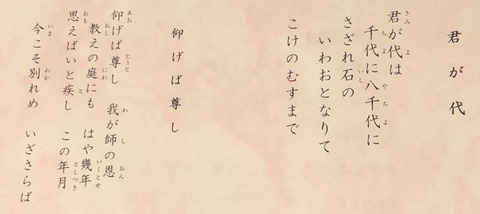 君が代
君が代は
千代に八千代に
さざれ石の
いわおとなりて
こけのむすまで
仰げば尊し
仰げば尊し　我が師の恩
教えの庭にも　はや幾年
思えばいと疾し　この年月
今こそ別れめ　いざさらば